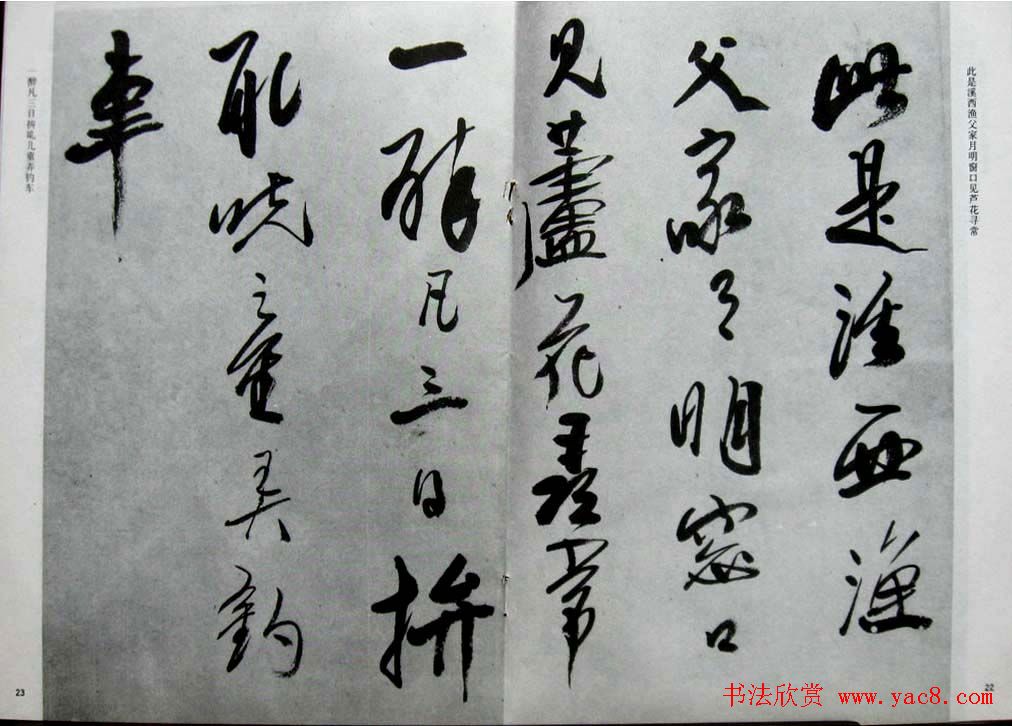 此是溪西渔父家月明窗口见芦花寻常
此是溪西漁
父家月明窗口
見蘆花尋常
一醉凡三日拚
兒童弄釣
車
一醉凡三日拚儿童弄钓车
22
23
书法欣赏 www.yac8.com